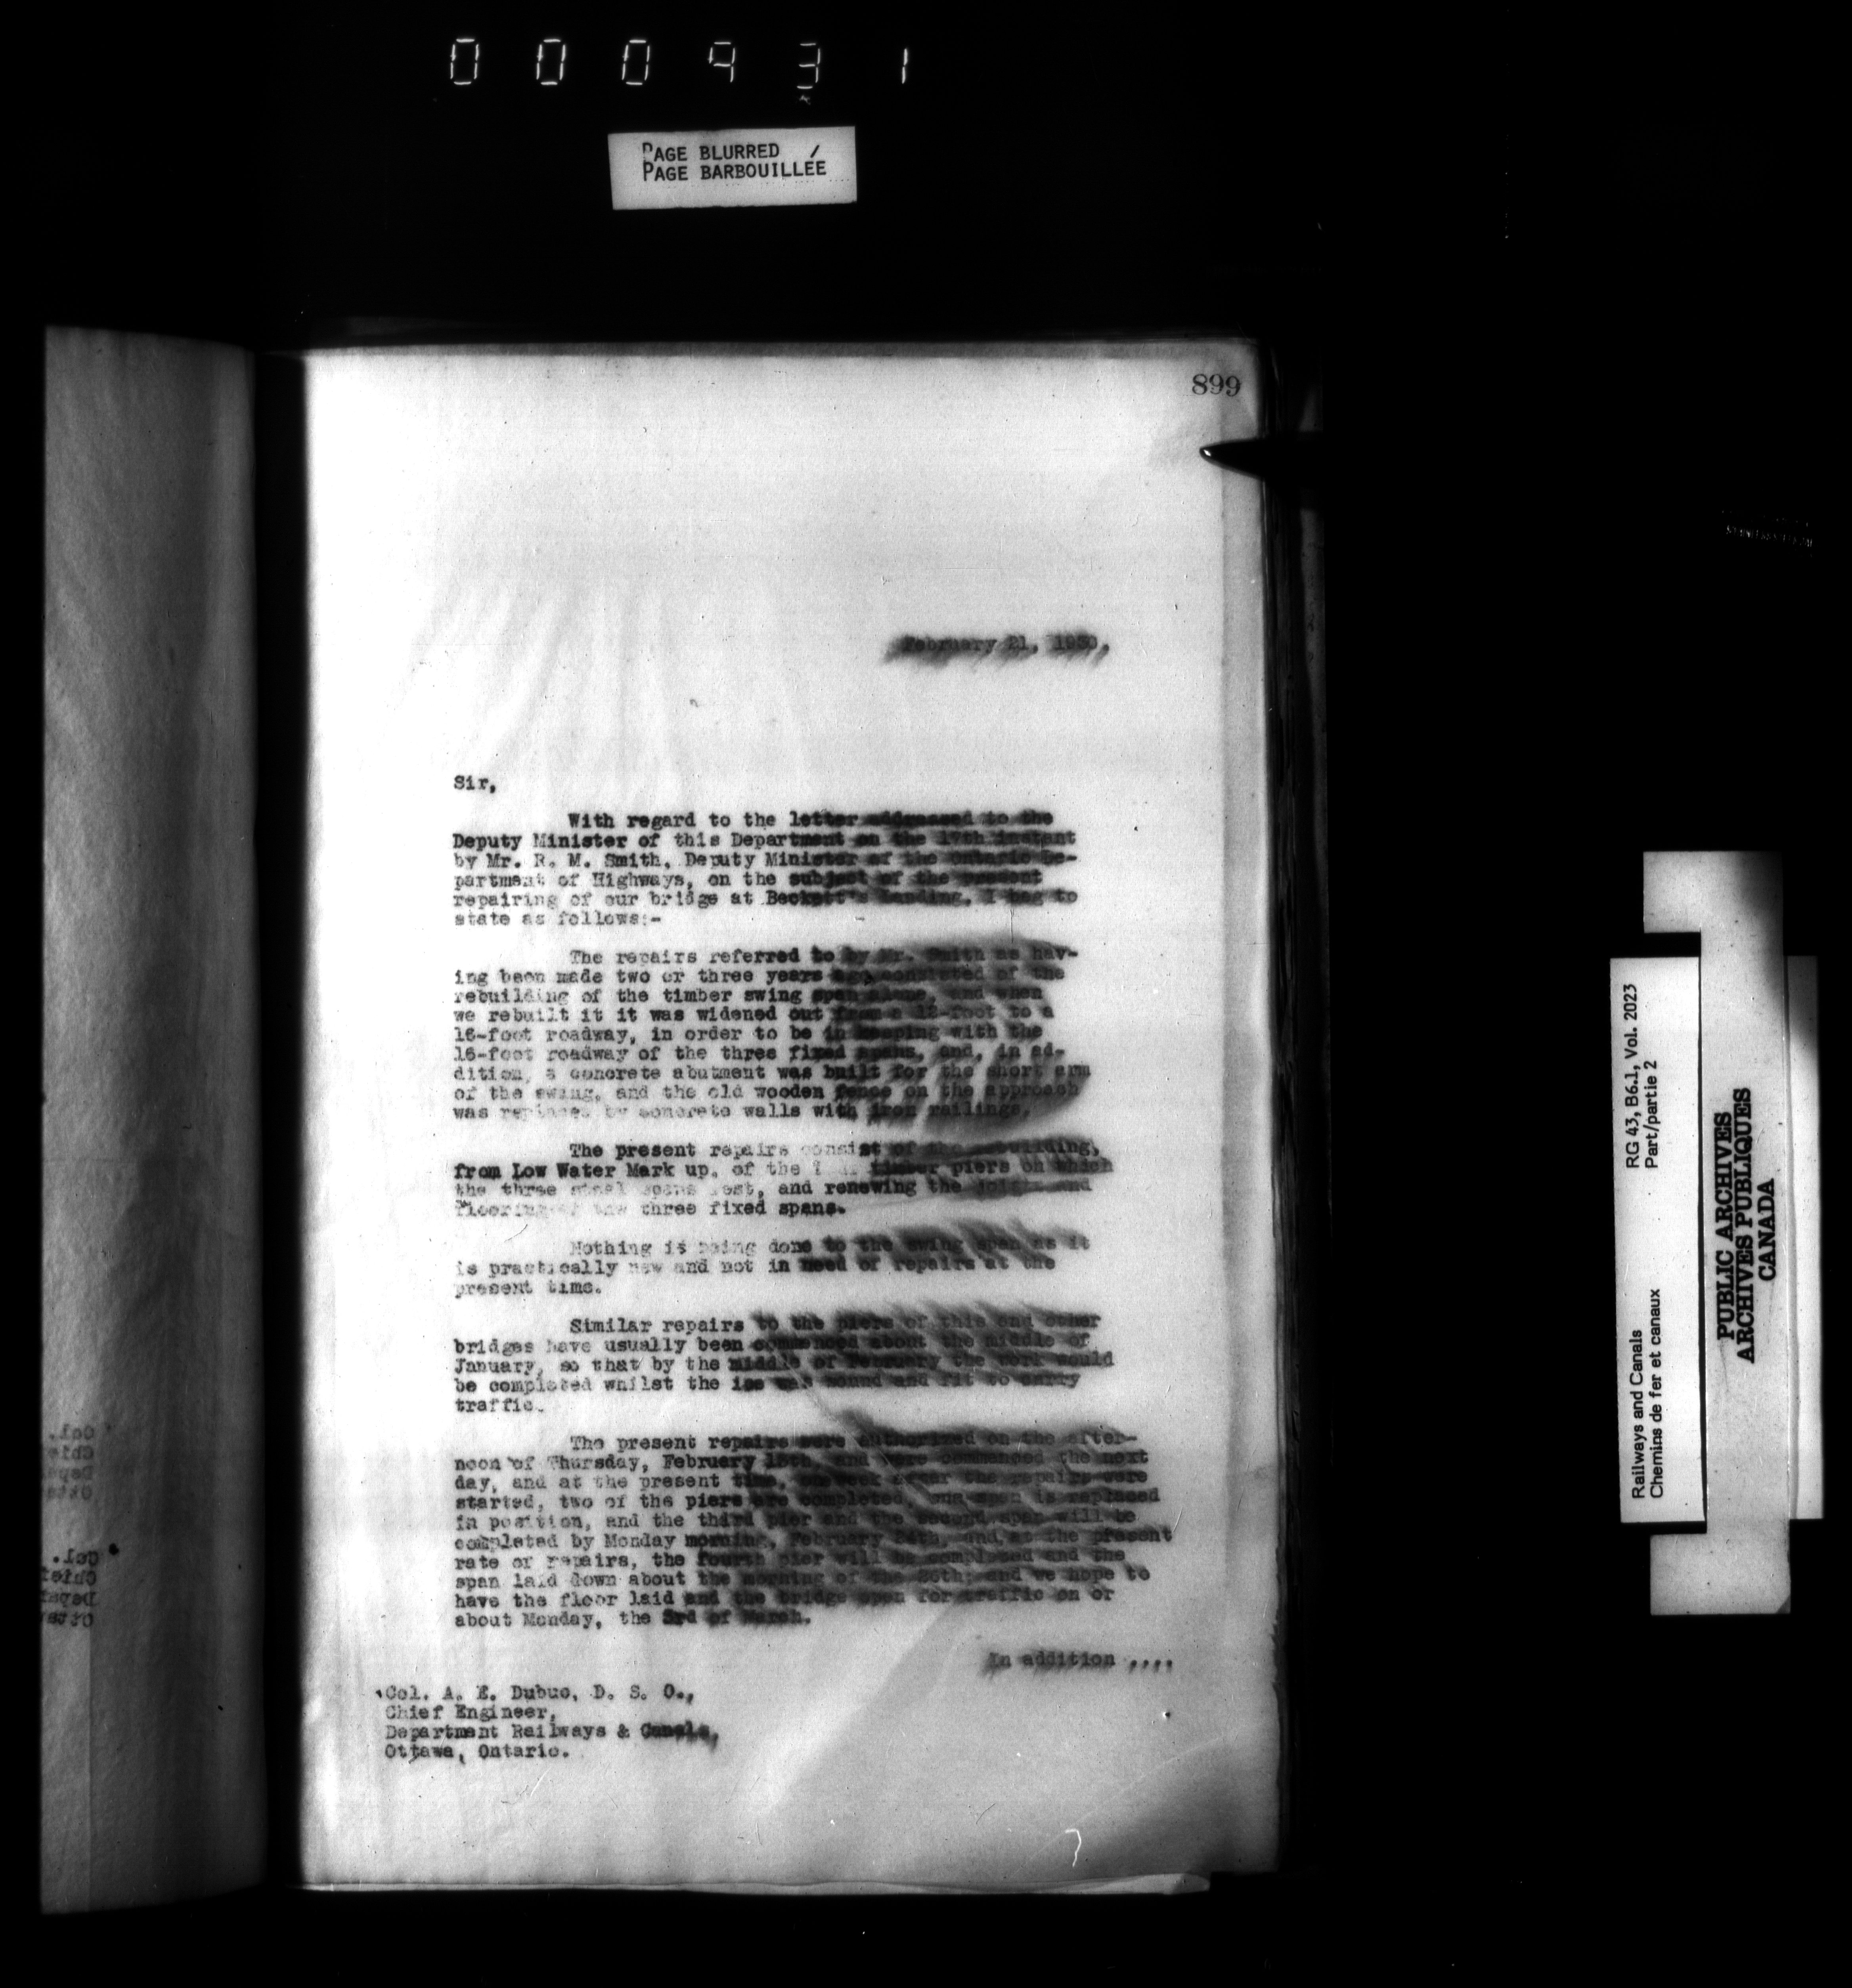 000931
PAGE BLURRED
PAGE BARBOUILLÉE
899
February 21, 1930.
Sir,
With regard to the letter addressed to the
Deputy Minister of this Department on the 17th instant
by Mr. R. M. Smith, Deputy Minister of the Ontario De-
partment of Highways, on the subject of the present
repairing of our bridge at Beckett's Landing, I beg to
state as follows:-
The repairs referred to by Mr. Smith as hav-
ing been made two or three years ago, consisted of the
rebuilding of the timber swing span alone, and when
we rebuilt it it was widened out from a 12-foot to a
16-foot roadway, in order to be in keeping with the
16-foot roadway of the three fixed spans, and, in ad-
dition, a concrete abutment was built for the short arm
of the swing, and the old wooden fence on the approach
was replaced by concrete walls with iron railings.
The present repairs consist of the rebuilding,
from Low Water Mark up, of the timber piers on which
the three steel spans rest, and renewing the joists and
flooring of the three fixed spans.
Nothing is being done to the swing span as it
is practically new and not in need of repairs at the
present time.
Similar repairs to the piers of this and other
bridges have usually been commenced about the middle of
January, so that by the middle of February the work would
be completed whilst the ice was sound and fit to carry
traffic.
The present repairs were authorized on the after-
noon of Thursday, February 13th, and were commenced the next
day, and at the present time, one week after the repairs were
started, two of the piers are completed, one span is replaced
in position, and the third pier and the second span will be
completed by Monday morning, February 24th, and at the present
rate of repairs, the fourth pier will be completed and the
span laid down about the morning of the 26th; and we hope to
have the floor laid and the bridge open for traffic on or
about Monday, the 3rd of March.
In addition ....
Col. A. E. Dubuc, D. S. O.,
Chief Engineer,
Department Railways & Canals,
Ottawa, Ontario.
RG 43, B6.1, Vol. 2023
Part/partie 2
Railways and Canals
Chemins de fer et canaux
PUBLIC ARCHIVES
ARCHIVES PUBLIQUES
CANADA